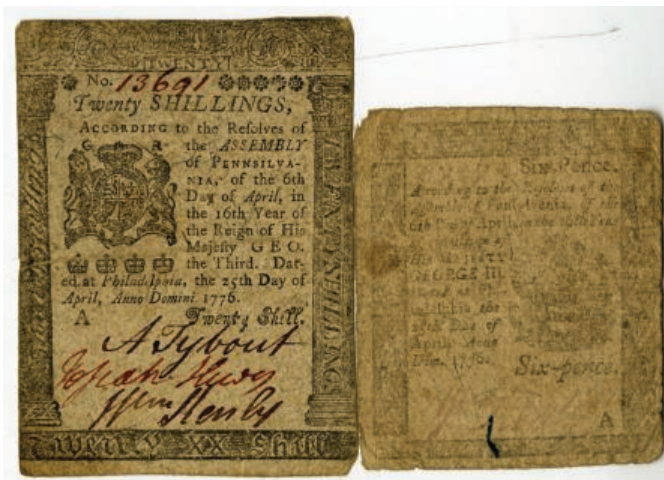 TWENTY
No. 13691
Twenty SHILLINGS,
ACCORDING to the Resolves of
G R the ASSEMBLY
of PENNSILVA-
NIA, of the 6th
Day of April, in
the 16th Year of
the Reign of His
Majesty GEO.
the Third. Dat-
ed at Philadelphia, the 25th Day of
April, Anno Domini 1776.
A Twenty Shill.
A Tybout
Josiah Hewes
Wm Henly
Twenty XX Shill
TWENTY SHILLINGS
Six-Pence.
According to the
of Pennsylvania, of the
April, in the 16th Year
HIS MAJESTY
GEORGE III.
the
Day of
April, Anno
Dom. 1776.
Six-pence.
A